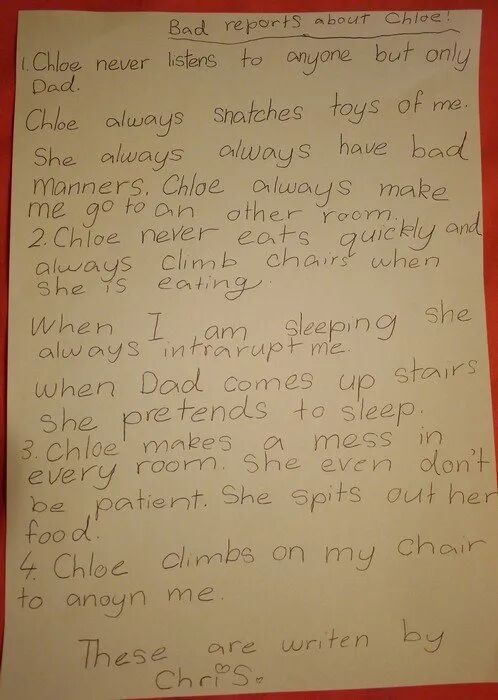 Bad reports about Chloe!
1. Chloe never listens to anyone but only
Dad.
Chloe always snatches toys of me.
She always always have bad
manners. Chloe always make
me go to an other room.
2. Chloe never eats quickly and
always climb chairs when
she is eating.
When I am sleeping she
always intrarupt me.
when Dad comes up stairs
she pretends to sleep.
3. Chloe makes a mess in
every room. She even don't
be patient. She spits out her
food.
4. Chloe climbs on my chair
to anoyn me.
These are writen by
Chris.